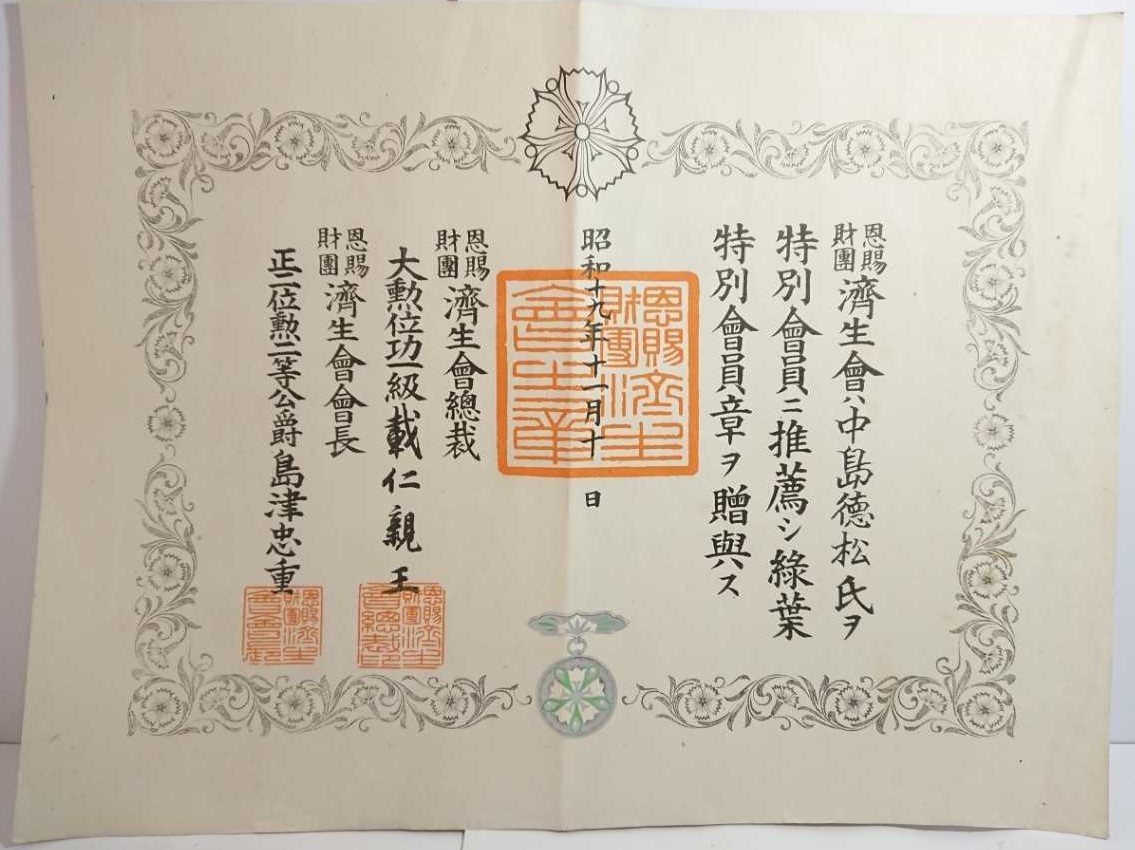 恩賜財團濟生會ハ中島德松氏ヲ
特別會員ニ推薦シ綠葉
特別會員章ヲ贈與ス
昭和十九年十一月十日
恩賜財團濟生會總裁
大勲位功一級載仁親王
恩賜財團濟生會會長
正二位勲二等公爵島津忠重
恩賜
財團濟生
會之章
恩賜
財團濟生
會總裁印
恩賜
財團濟生
會會長印